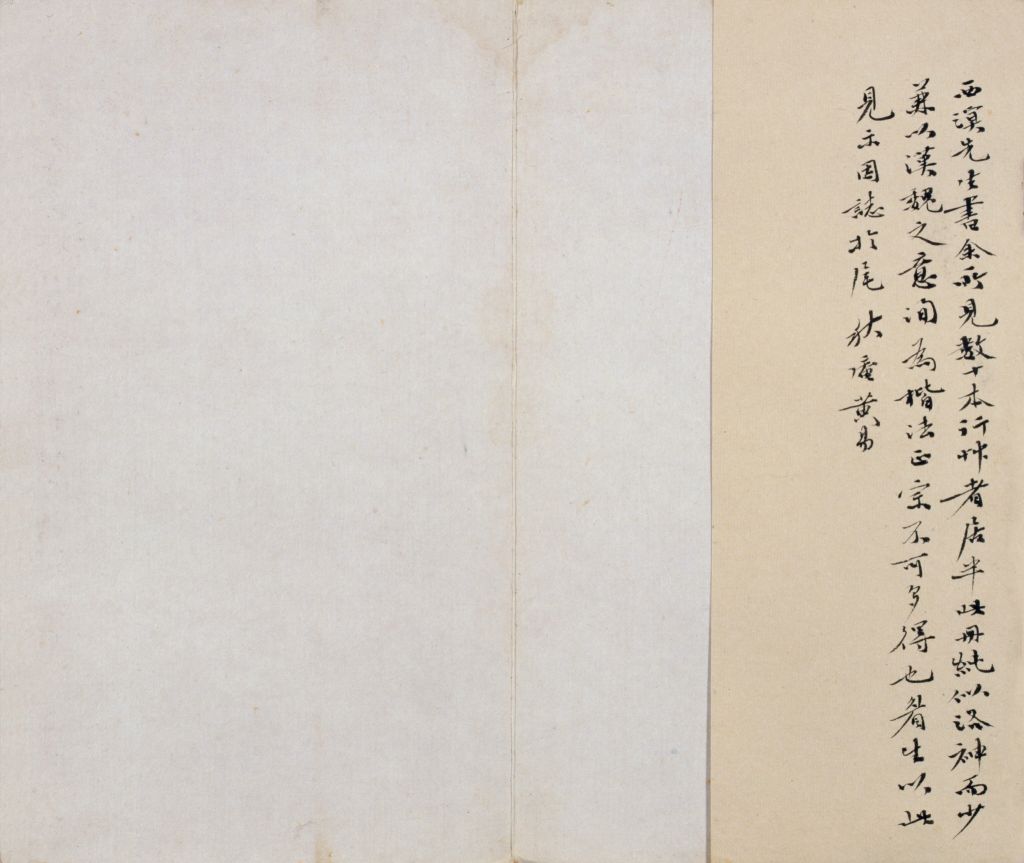 西溟先生書余所見數十本行艸者居半此冊純似洛神而少
兼以漢魏之意洵為楷法正宗不可多得也眉生以此
見示因誌於尾 秋盦黃易